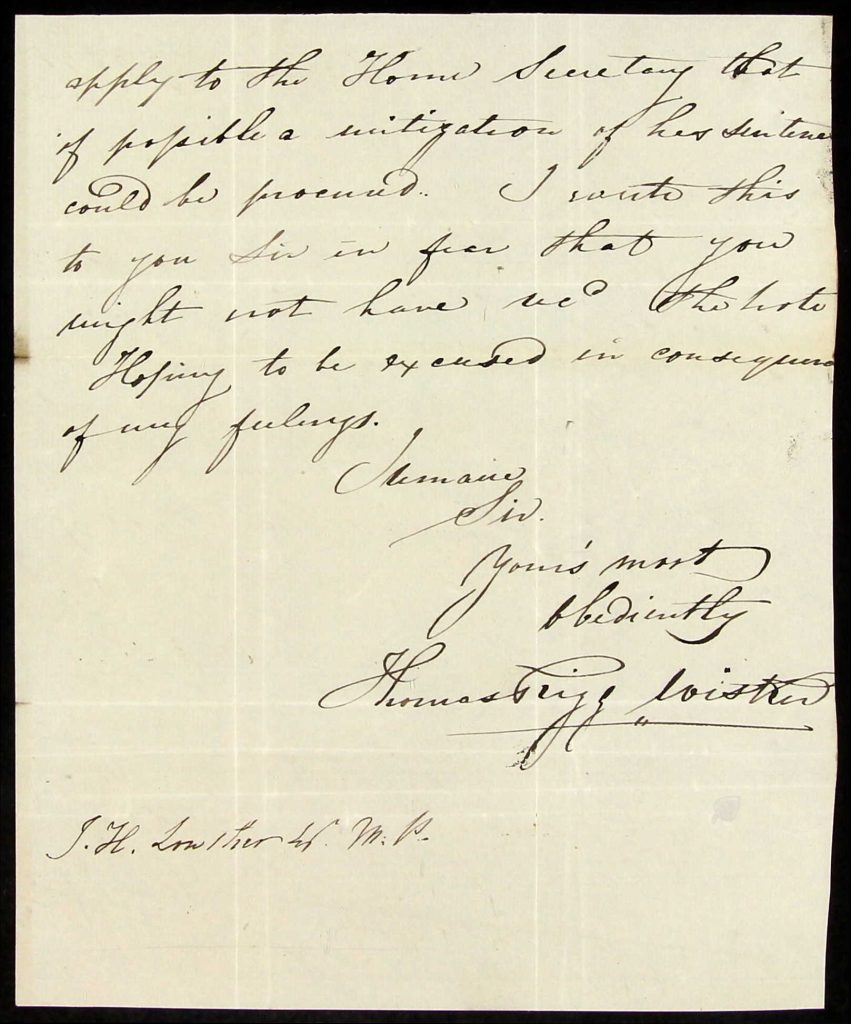 apply to the Home Secretary that
if possible a mitigation of his sentence
could be procured. I wrote this
to you Sir in fear that you
might not have recd the note
Hoping to be excused in consequence
of my feelings.
I remain
Sir.
Your's most
obediently
Thomas Trigg Wisker
J. H. Lowther Esq. M. P.